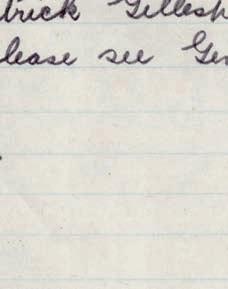 trick Gillesh
lease see Ger